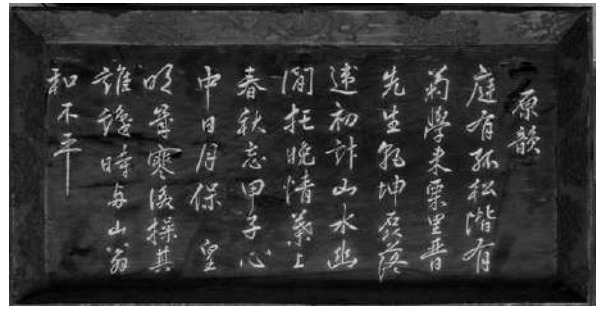 原韻
庭有孤松階有
菊學来栗里晉
先生乾坤磊落
違初計山水幽
閒托晩情葉上
春秋忘甲子心
中日月保 皇
明歲寒後操其
誰識時与山翁
和不平